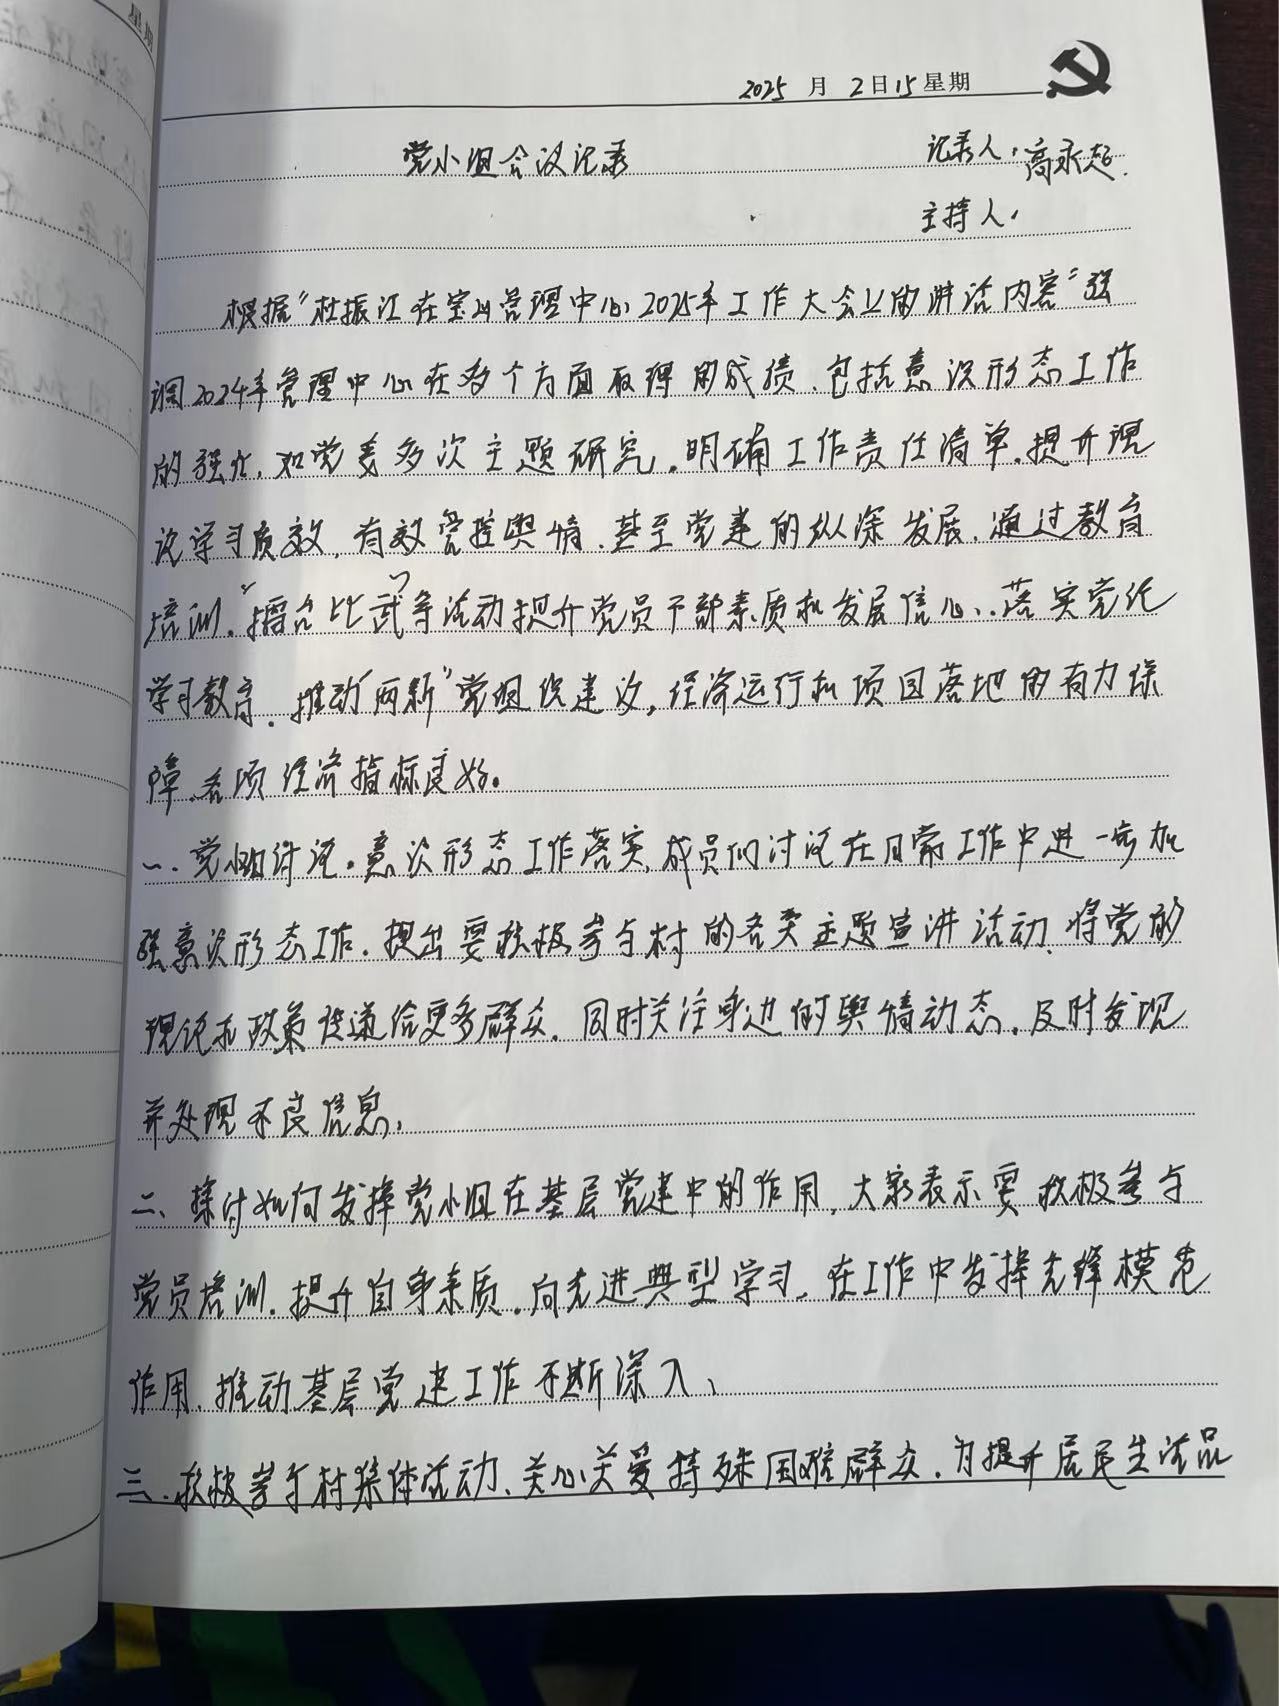 星期
2025 月 2日15星期
党小组会议记录 记录人：高永超
主持人：
根据“杜振江在宝山管理中心2025年工作大会上的讲话内容”强
调2024年管理中心在多个方面取得的成绩、包括意识形态工作
的强化，如党委多次主题研究，明确工作责任清单，提升理
论学习质效，有效管控舆情、基至党建的纵深发展，通过教育
培训，“擂台比武”等活动提升党员干部素质和发展信心、落实党纪
学习教育，推动“两新”党组织建设，经济运行和项目落地的有力保
障，各项经济指标良好。
一、党小组讨论。意识形态工作落实，成员们讨论在日常工作中进一步加
强意识形态工作，提出要积极参与村的各类主题宣讲活动，将党的
理论和政策传递给更多群众，同时关注身边的舆情动态，及时发现
并处理不良信息，
二、探讨如何发挥党小组在基层党建中的作用，大家表示要积极参与
党员培训，提升自身素质，向先进典型学习，在工作中发挥先锋模范
作用，推动基层党建工作不断深入、
三、积极参与村集体活动、关心关爱特殊困难群众，为提升居民生活品